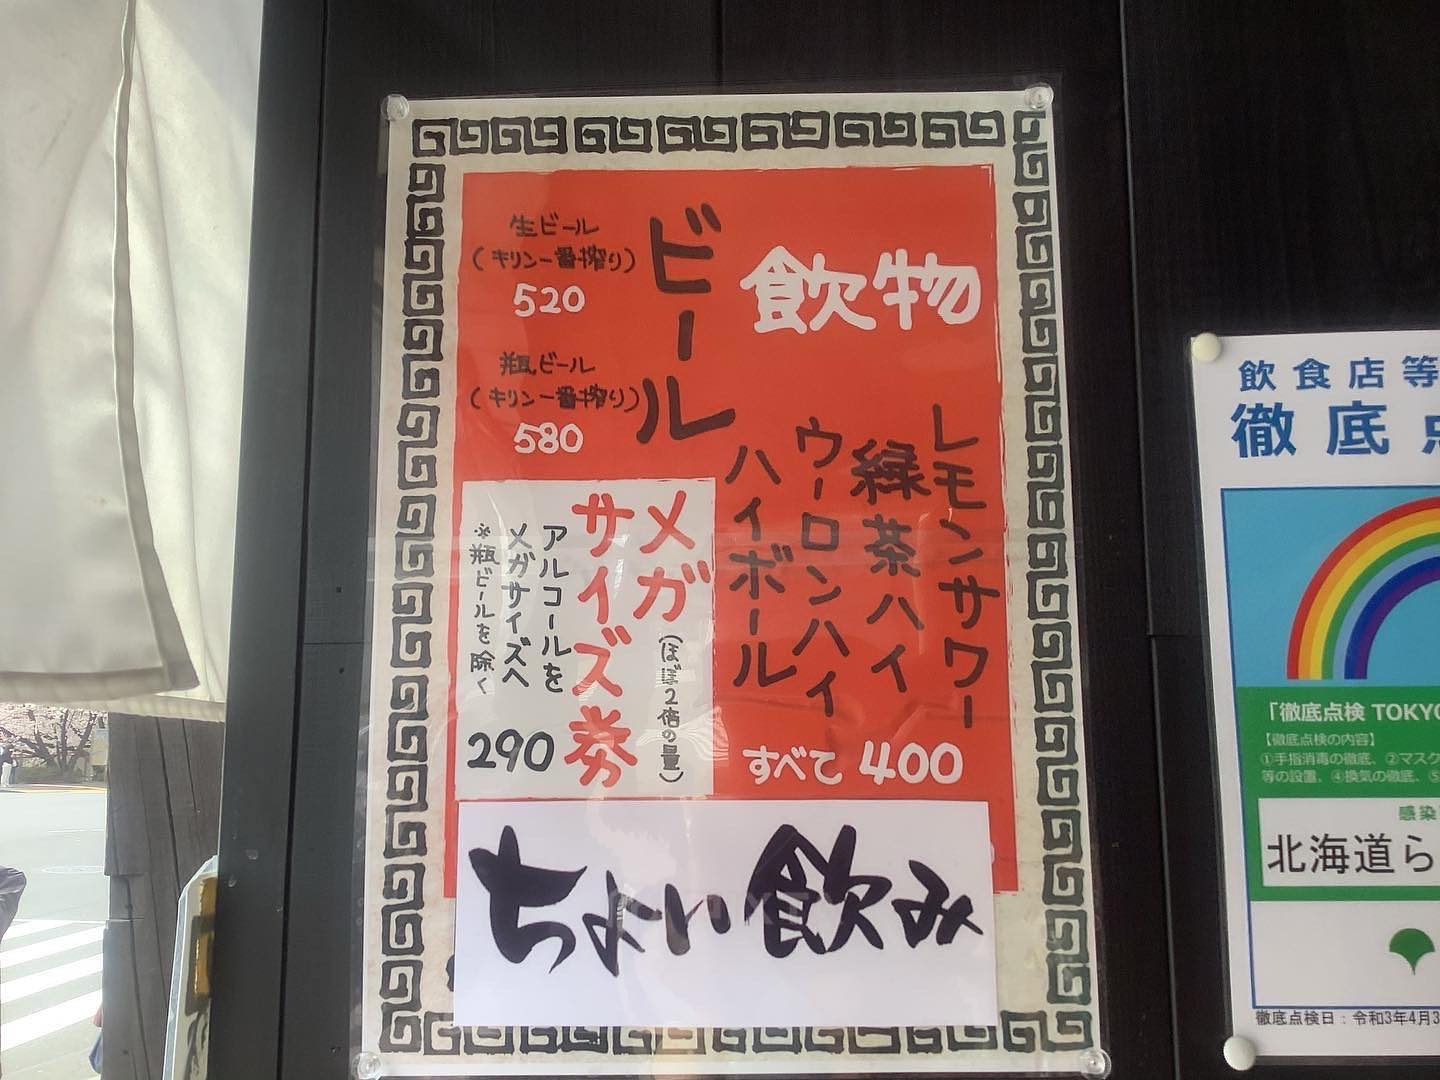 飲物
ビール
生ビール
(キリン一番搾り)
520
瓶ビール
(キリン一番搾り)
580
レモンサワー
緑茶ハイ
ウーロンハイ
ハイボール
すべて 400
メガ(ほぼ2倍の量)
サイズ券
アルコールを
メガサイズへ
※瓶ビールを除く
290
ちょい飲み
飲食店等
徹底点
「徹底点検 TOKYO
【徹底点検の内容】
①手指消毒の徹底、②マスク
等の設置、④換気の徹底、⑤
感染
北海道ら
徹底点検日:令和3年4月3